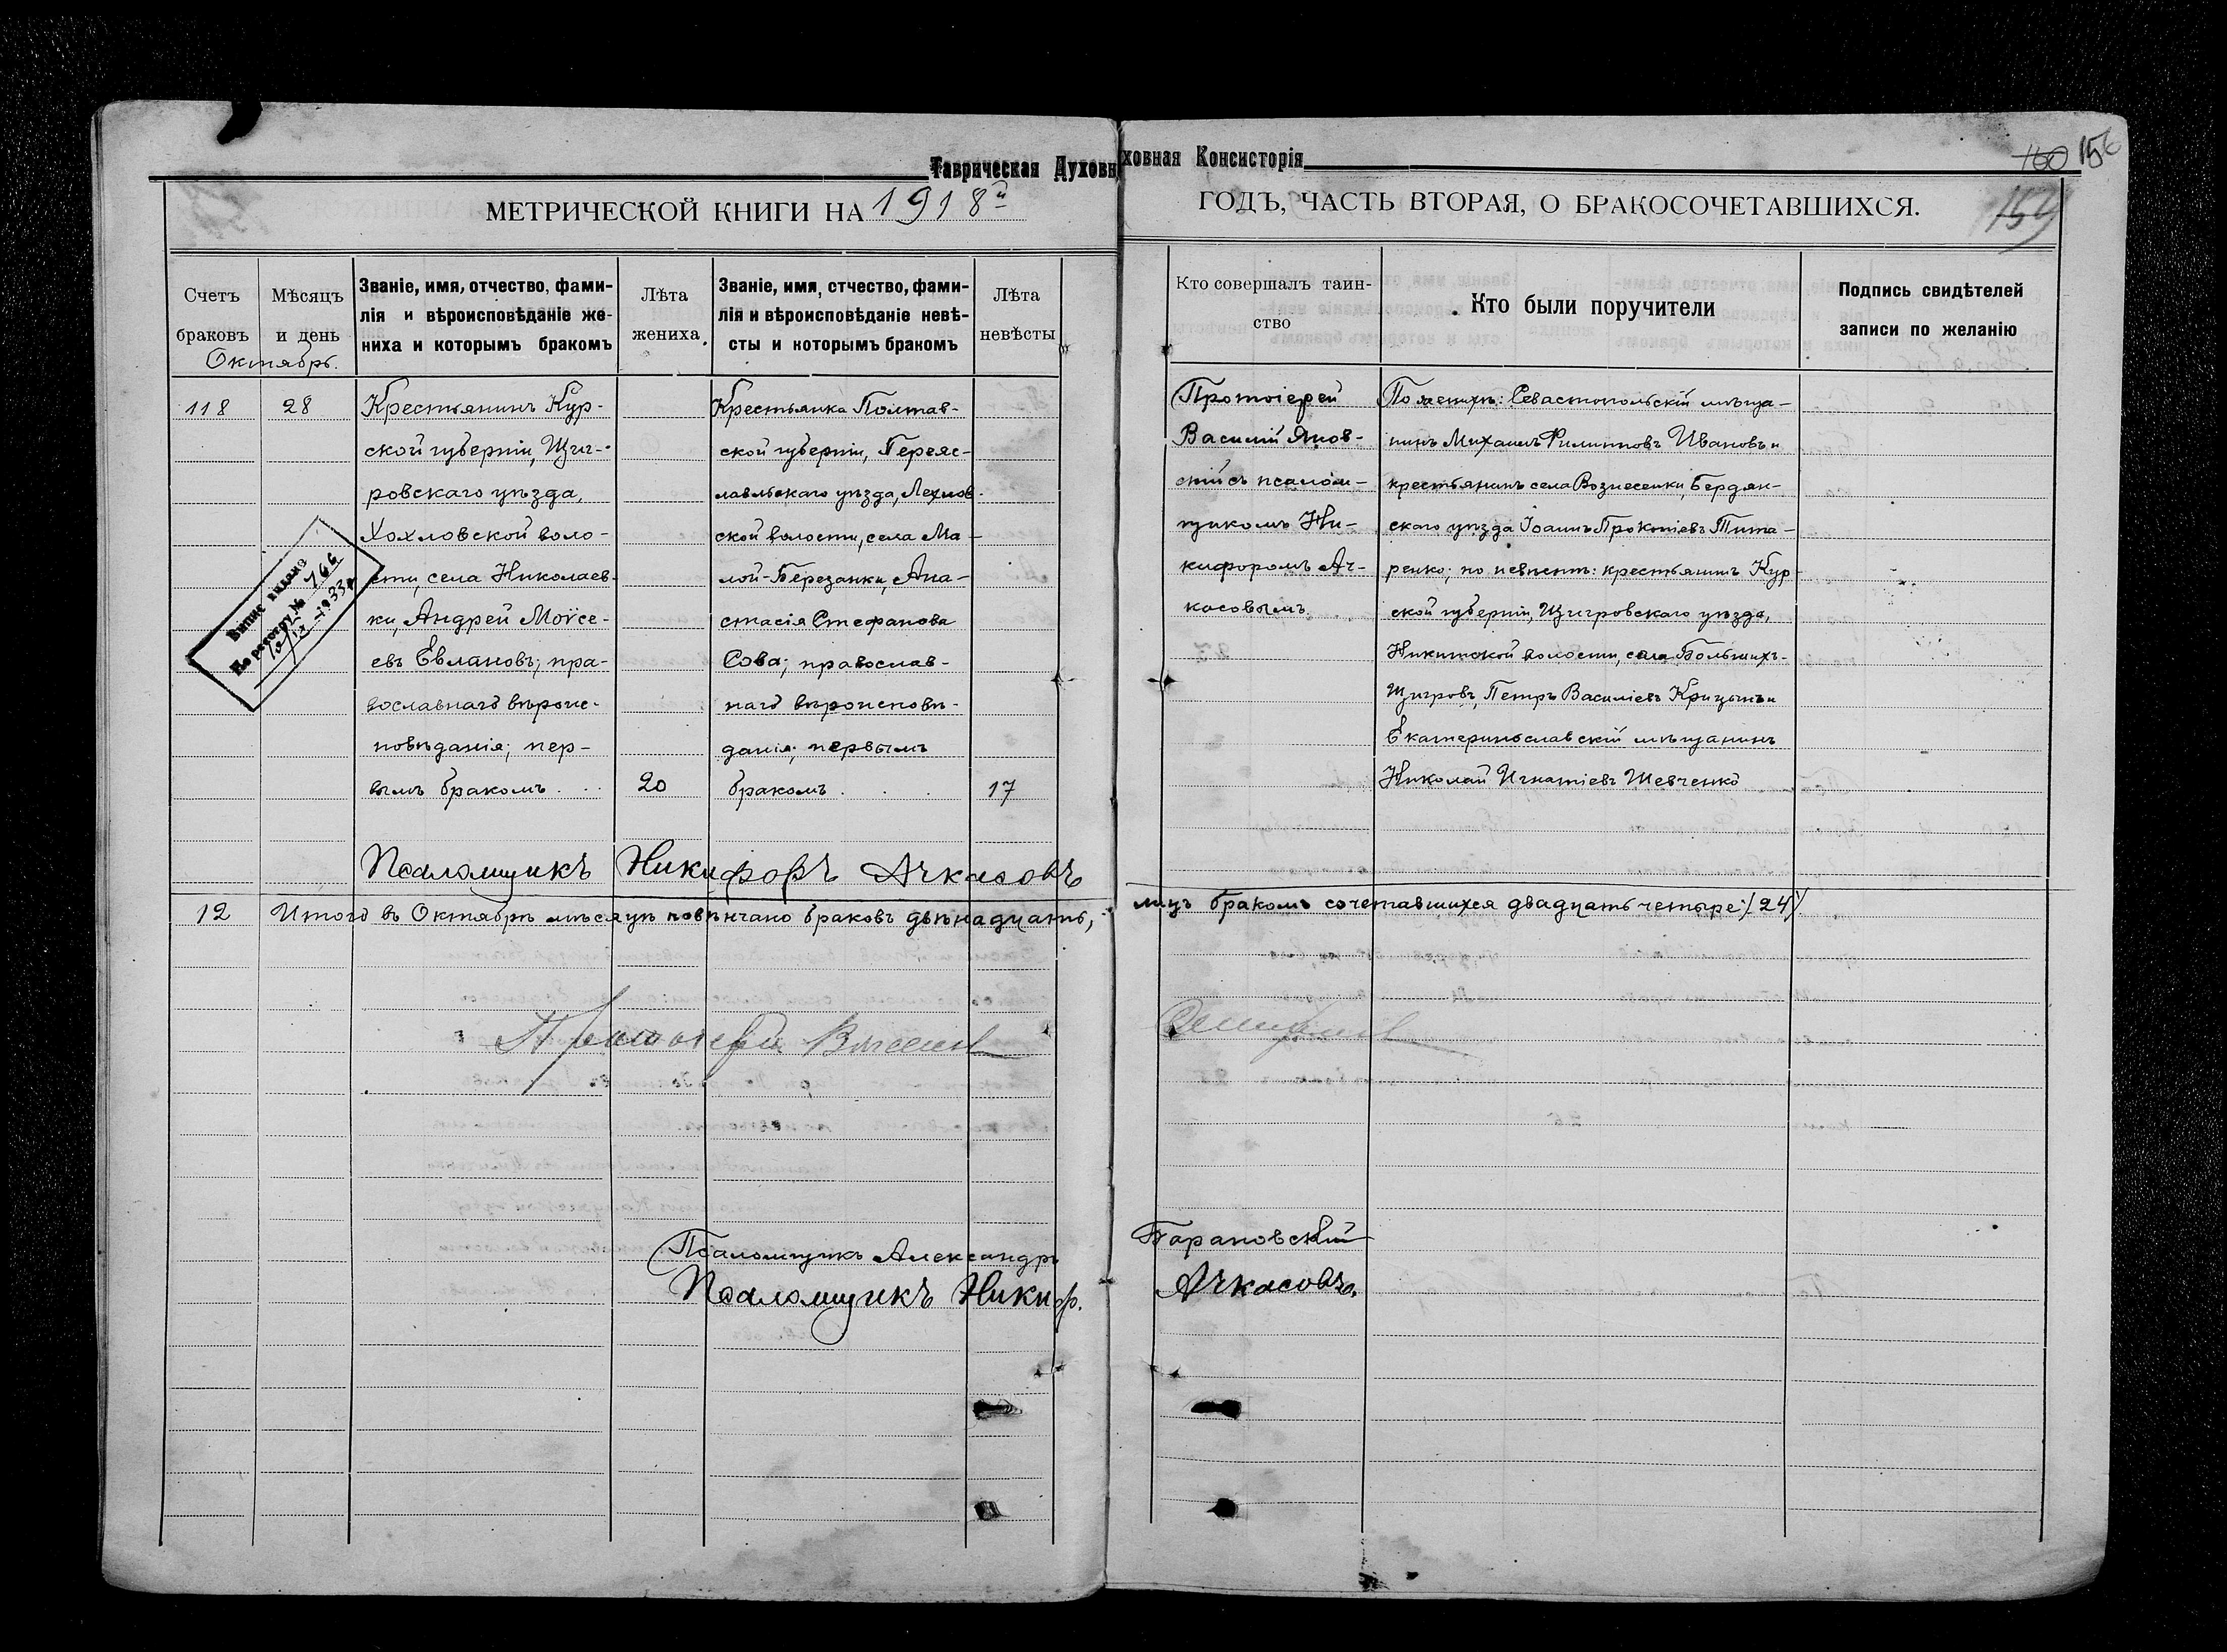 Таврическая Духовная Консисторія
160 156
159
МЕТРИЧЕСКОЙ КНИГИ НА 1918й ГОДЪ, ЧАСТЬ ВТОРАЯ, О БРАКОСОЧЕТАВШИХСЯ.
Счетъ
браковъ
Мѣсяцъ
и день
Октябрь.
Званіе, имя, отчество, фами-
лія и вѣроисповѣданіе же-
ниха и которымъ бракомъ
Лѣта
жениха.
Званіе, имя, стчество, фами-
лія и вѣроисповѣданіе невѣ-
сты и которымъ бракомъ
Лѣта
невѣсты
Кто совершалъ таин-
ство
Кто были поручители
Подпись свидѣтелей
записи по желанію
118
28
Крестьянинъ Кур-
ской губерніи, Щиг-
ровскаго уѣзда,
Хохловской воло-
сти, села Николаев-
ки, Андрей Моѵсе-
евъ Евлановъ; пра-
вославнаго вѣроис-
повѣданія; пер-
вымъ бракомъ . .
20
Крестьянка Полтав-
ской губерніи, Переяс-
лавльскаго уѣзда, Лехнов-
ской волости, села Ма-
лой-Березанки, Ана-
стасія Стефанова
Сова; православ-
наго вѣроисповѣ-
данія; первымъ
бракомъ . . .
17
Протоіерей
Василій Янов-
скій съ псалом-
щикомъ Ни-
кифоромъ Ач-
касовымъ
По женихѣ: Севастопольскій мѣща-
нинъ Михаилъ Филипповъ Ивановъ и
крестьянинъ села Вознесенки, Бердян-
скаго уѣзда Іоаннъ Прокопіевъ Тита-
ренко; по невѣстѣ: крестьянинъ Кур-
ской губерніи, Щигровскаго уѣзда,
Никитской волости, села Большихъ-
Щигровъ, Петръ Василіевъ Крицынъ и
Екатеринославскій мѣщанинъ
Николай Игнатіевъ Шевченко
Випис видано
По реєстру № 766
1933 р
Псаломщикъ Никифоръ Ачкасовъ
12 Итого въ Октябрѣ мѣсяцѣ повѣнчано браковъ двѣнадцать, лицъ бракомъ сочетавшихся двадцать четыре /24/
Протоіерей Василій
Псаломщикъ Александръ Барановскій
Псаломщикъ Никиф. Ачкасовъ.